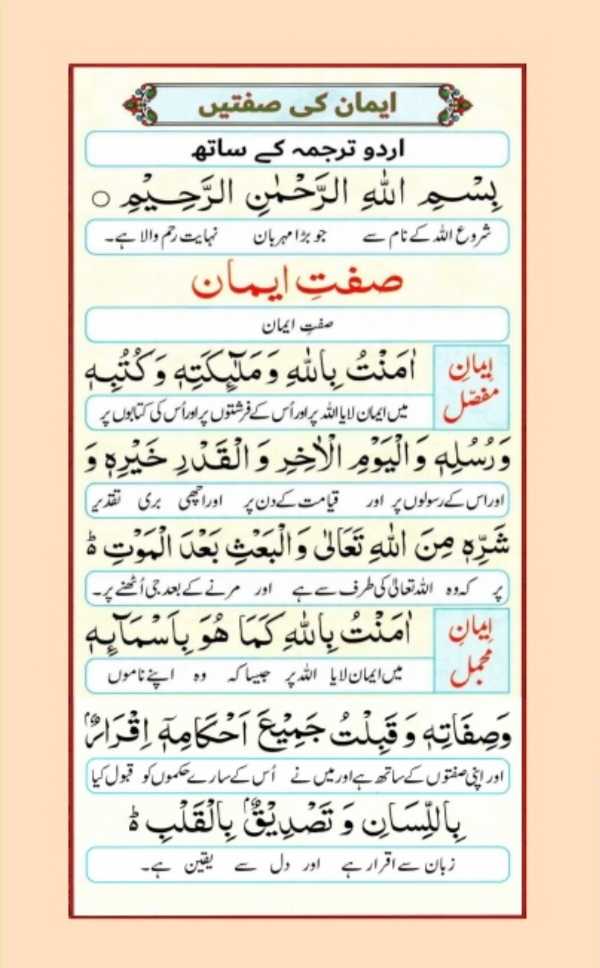 ایمان کی صفتیں
اردو ترجمہ کے ساتھ
بِسْمِ اللّٰهِ الرَّحْمٰنِ الرَّحِیْمِ ○
شروع اللہ کے نام سے جو بڑا مہربان نہایت رحم والا ہے۔
صفتِ ایمان
صفتِ ایمان
ایمانِ مفصّل
اٰمَنْتُ بِاللّٰهِ وَ مَلٰٓئِكَتِهٖ وَ كُتُبِهٖ
میں ایمان لایا اللہ پر اور اُس کے فرشتوں پر اور اُس کی کتابوں پر
وَ رُسُلِهٖ وَ الْیَوْمِ الْاٰخِرِ وَ الْقَدْرِ خَیْرِهٖ وَ
اور اس کے رسولوں پر اور قیامت کے دن پر اور اچھی بری تقدیر
شَرِّهٖ مِنَ اللّٰهِ تَعَالٰی وَ الْبَعْثِ بَعْدَ الْمَوْتِ ؕ
پر کہ وہ اللہ تعالیٰ کی طرف سے ہے اور مرنے کے بعد جی اُٹھنے پر۔
ایمانِ مجمل
اٰمَنْتُ بِاللّٰهِ كَمَا هُوَ بِاَسْمَآئِهٖ
میں ایمان لایا اللہ پر جیسا کہ وہ اپنے ناموں
وَ صِفَاتِهٖ وَ قَبِلْتُ جَمِیْعَ اَحْكَامِهٖٓ اِقْرَارٌۢ
اور اپنی صفتوں کے ساتھ ہے اور میں نے اُس کے سارے حکموں کو قبول کیا
بِاللِّسَانِ وَ تَصْدِیْقٌۢ بِالْقَلْبِ ؕ
زبان سے اقرار ہے اور دل سے یقین ہے۔